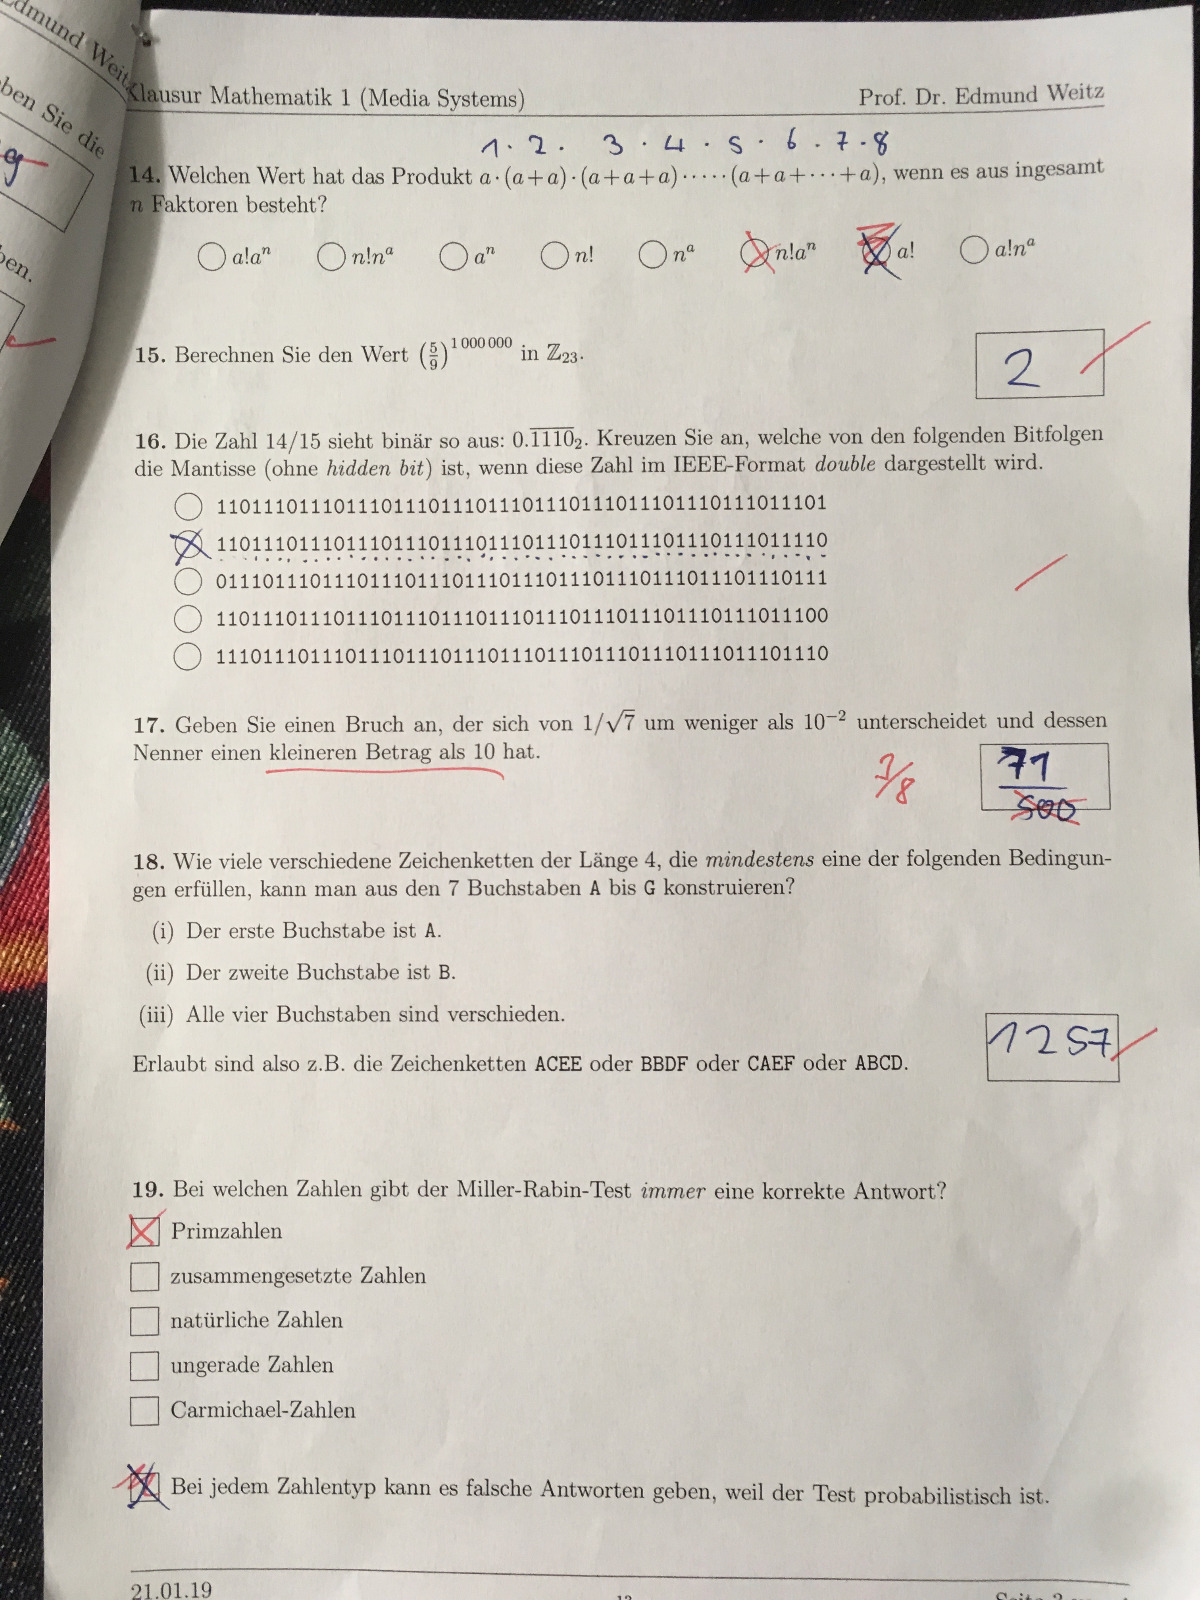 Edmund Weitz
ben Sie die
g
ben.
Klausur Mathematik 1 (Media Systems) Prof. Dr. Edmund Weitz
1 · 2 · 3 · 4 · 5 · 6 · 7 · 8
14. Welchen Wert hat das Produkt a·(a+a)·(a+a+a)·····(a+a+···+a), wenn es aus ingesamt
n Faktoren besteht?
a!aⁿ n!nᵃ aⁿ n! nᵃ n!aⁿ a! a!nᵃ
15. Berechnen Sie den Wert (5/9)^1 000 000 in ℤ₂₃.
2
16. Die Zahl 14/15 sieht binär so aus: 0.1̅1̅1̅0̅₂. Kreuzen Sie an, welche von den folgenden Bitfolgen
die Mantisse (ohne hidden bit) ist, wenn diese Zahl im IEEE-Format double dargestellt wird.
1101110111011101110111011101110111011101110111011101
1101110111011101110111011101110111011101110111011110
0111011101110111011101110111011101110111011101110111
1101110111011101110111011101110111011101110111011100
1110111011101110111011101110111011101110111011101110
17. Geben Sie einen Bruch an, der sich von 1/√7 um weniger als 10⁻² unterscheidet und dessen
Nenner einen kleineren Betrag als 10 hat.
3/8
71
500
18. Wie viele verschiedene Zeichenketten der Länge 4, die mindestens eine der folgenden Bedingun-
gen erfüllen, kann man aus den 7 Buchstaben A bis G konstruieren?
(i) Der erste Buchstabe ist A.
(ii) Der zweite Buchstabe ist B.
(iii) Alle vier Buchstaben sind verschieden.
Erlaubt sind also z.B. die Zeichenketten ACEE oder BBDF oder CAEF oder ABCD.
1257
19. Bei welchen Zahlen gibt der Miller-Rabin-Test immer eine korrekte Antwort?
Primzahlen
zusammengesetzte Zahlen
natürliche Zahlen
ungerade Zahlen
Carmichael-Zahlen
Bei jedem Zahlentyp kann es falsche Antworten geben, weil der Test probabilistisch ist.
21.01.19